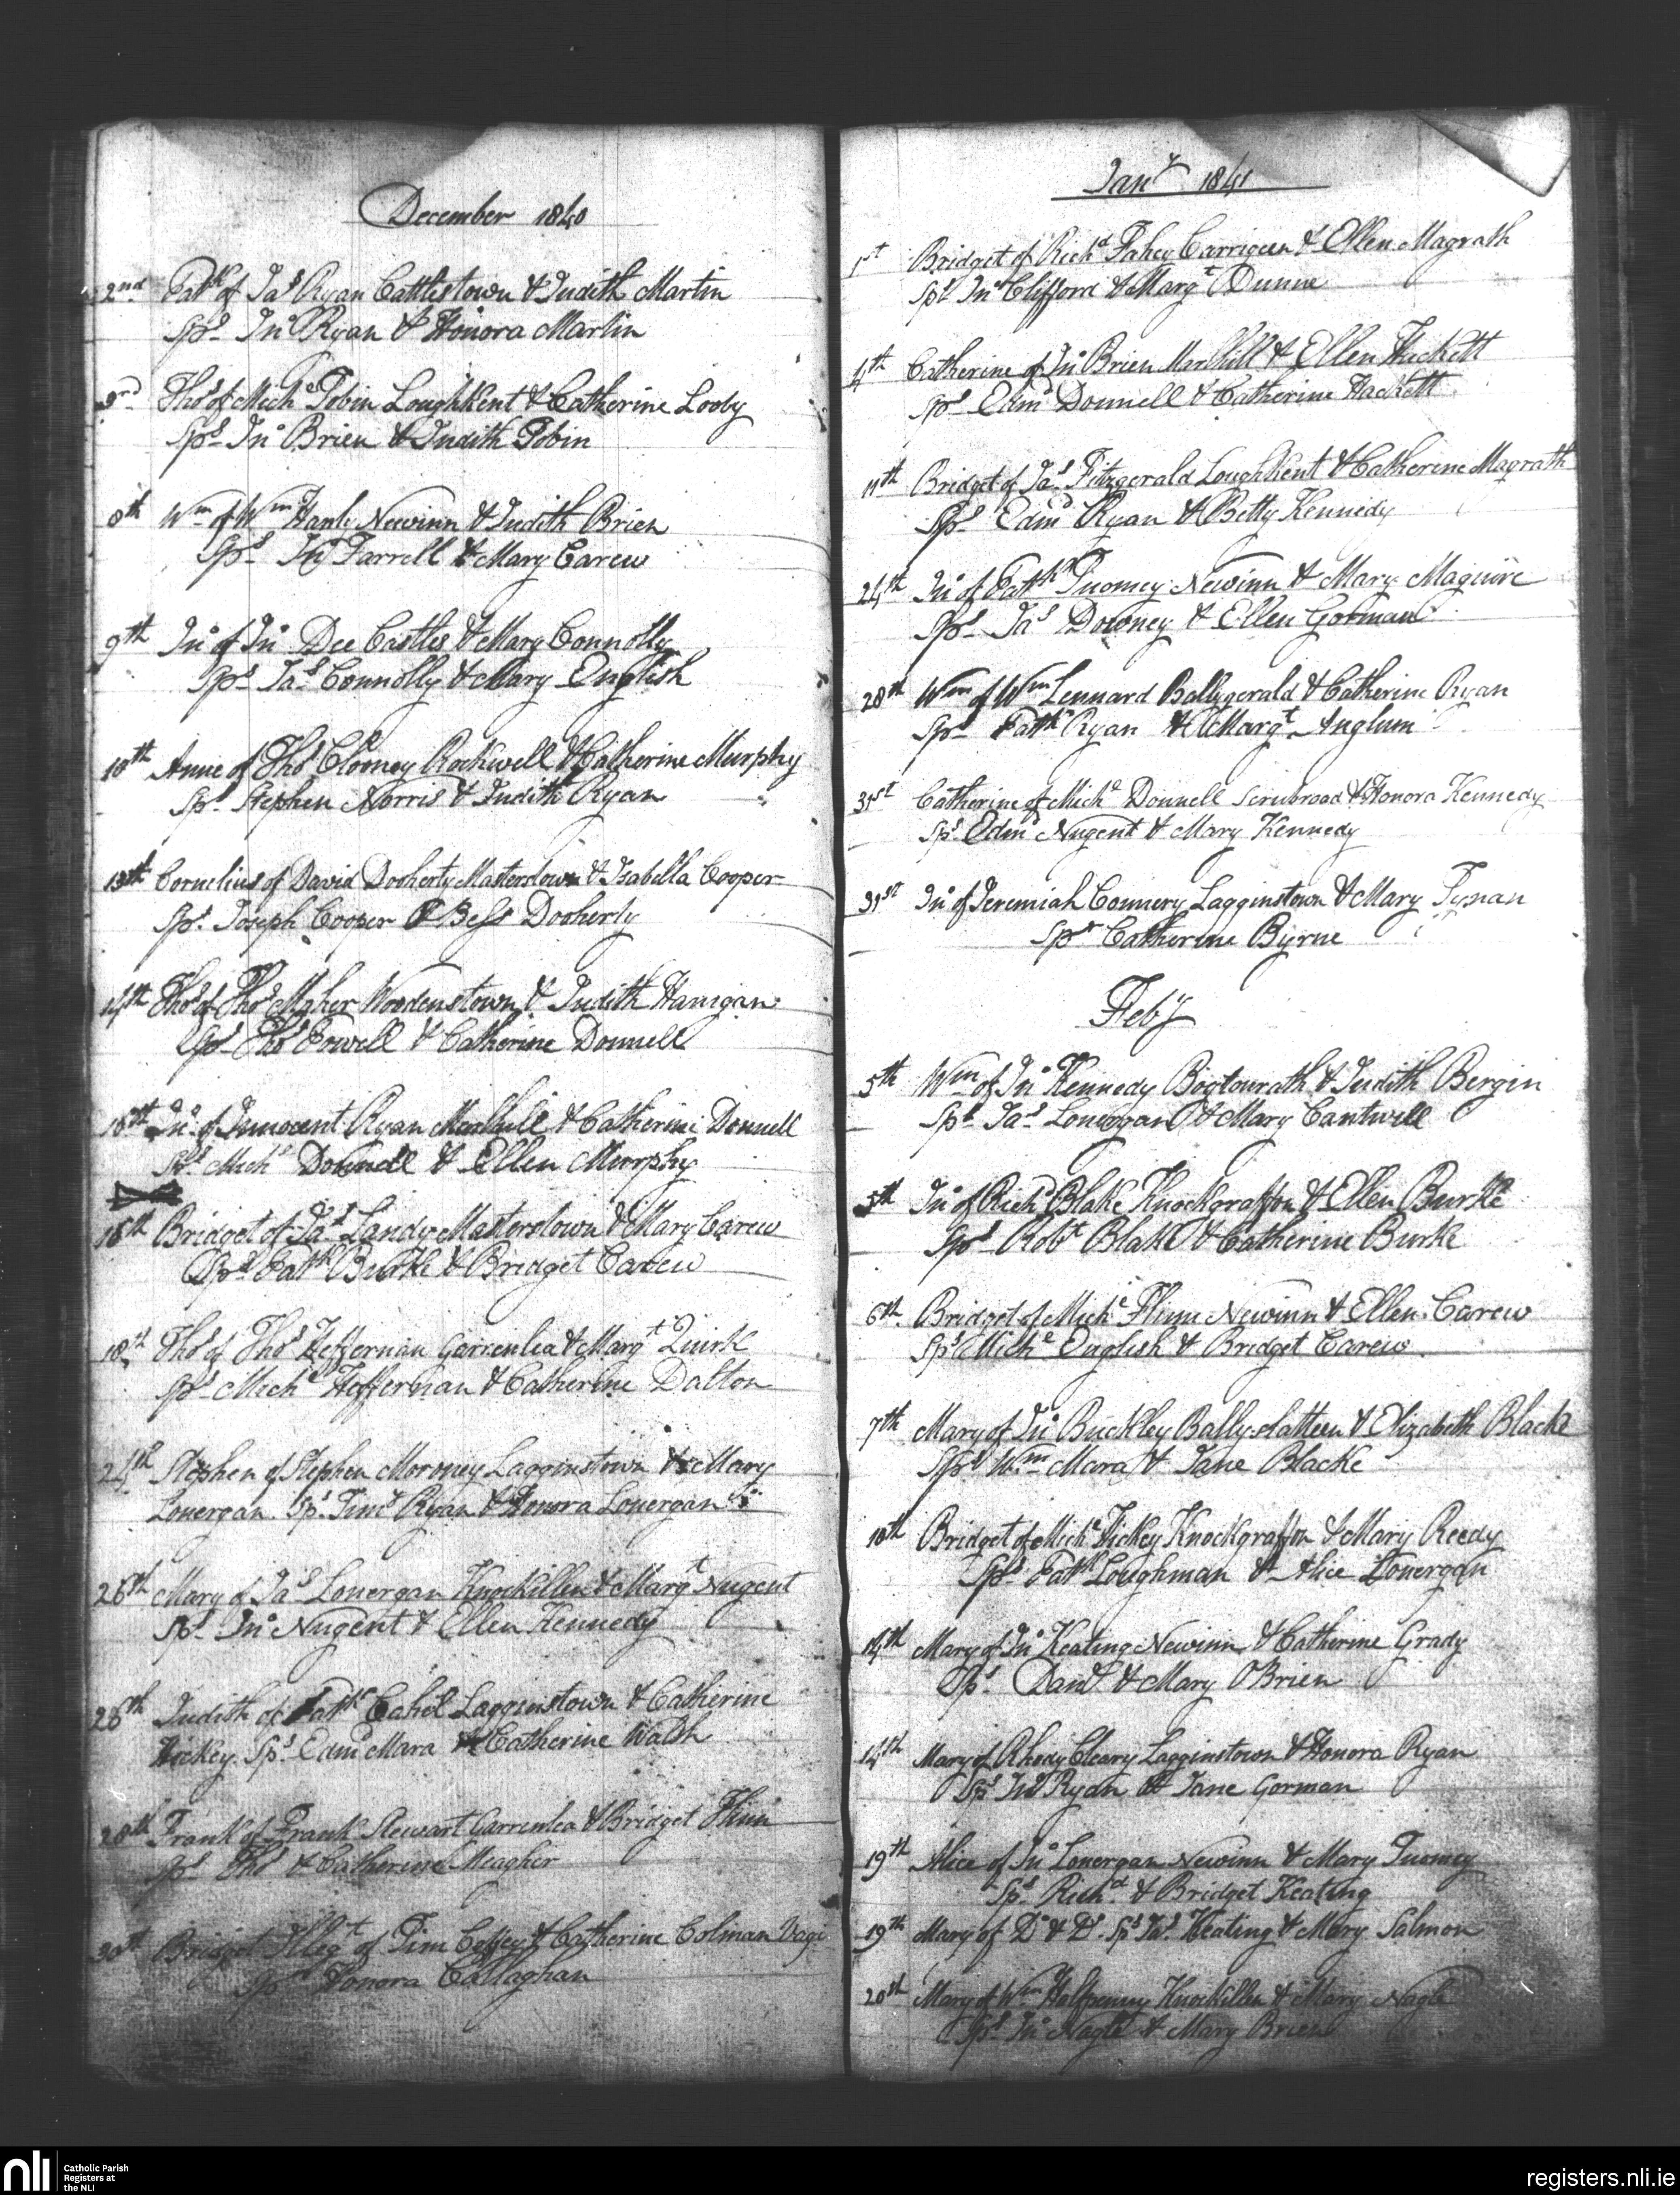 December 1840
2nd Patk of Jas Ryan Cattlestown & Judith Martin
Sps Jno Ryan & Honora Martin
3rd Thos of Michl Tobin Loughkent & Catherine Looby
Sps Jno Brien & Judith Tobin
8th Wm of Wm Hanly Newinn & Judith Brien
Sps Farrell & Mary Carew
9th Jno of Jno Dee Castles & Mary Connolly
Sps Jas Connolly & Mary English
10th Anne of Thos Clooney Rockwell & Catherine Murphy
Sps Stephen Norris & Judith Ryan
13th Cornelius of David Dooherty Masterstown & Isabella Cooper
Sps Joseph Cooper & Bess Dooherty
14th Thos of Thos Maher Woodenstown & Judith Hanigan
Sps Thos Powell & Catherine Donnell
16th Jno of Innocent Ryan & Catherine Donnell
Sps Michl Donnell & Ellen Murphy
18th Bridget of Jas Landy Masterstown & Mary Carew
Sps Patk Burke & Bridget Carew
18th Thos of Thos Heffernan Garrenlea & Margt Quirk
Sps Michl Heffernan & Catherine Dalton
24th Stephen of Stephen Moroney Lagginstown & Mary
Lonergan. Sps Timy Ryan & Honora Lonergan
26th Mary of Jas Lonergan Knockillen & Margt Nugent
Sps Jno Nugent & Ellen Kennedy
28th Judith of Patk Cahil Lagginstown & Catherine
Hickey. Sps Edmd Mara & Catherine Walsh
28th Frank of Frank Stewart Garrenlea & Bridget Flinn
Sps Thos & Catherine Meagher
30th Bridget Illegt of Tim & Catherine Colman Vagi
Sps Honora Callaghan
Jany 1841
1st Bridget of Richd Fahey Carrigeen & Ellen Magrath
Sps Jno Clifford & Margt Dunne
4th Catherine of Jno Brien Marlhill & Ellen Hackett
Sps Edmd Donnell & Catherine Hackett
11th Bridget of Jas Fitzgerald Loughkent & Catherine Magrath
Sps Edmd Ryan & Betty Kennedy
24th Jno of Patk Tuomey Newinn & Mary Maguire
Sps Jas Downey & Ellen Gorman
28th Wm of Wm Lennard Ballygerald & Catherine Ryan
Sps Patk Ryan & Margt Anglum
31st Catherine of Michl Donnell & Honora Kennedy
Sps Edmd Nugent & Mary Kennedy
31st Jno of Jeremiah Connery Lagginstown & Mary Tynan
Spr Catherine Byrne
Feby
5th Wm of Jno Kennedy Bogtourath & Judith Bergin
Sps Jas Lonergan & Mary Cantwell
5th Jno of Richd Blake Knockgraffon & Ellen Burke
Sps Robt Blake & Catherine Burke
6th Bridget of Michl Flinn Newinn & Ellen Carew
Sps Michl English & Bridget Carew
7th Mary of Jno Buckley Ballyslatteen & Elizabeth Blacke
Sps Wm Mara & Jane Blacke
10th Bridget of Michl Hickey Knockgraffon & Mary Reedy
Sps Patk Loughman & Alice Lonergan
14th Mary of Jno Keating Newinn & Catherine Grady
Sps Danl & Mary O'Brien
14th Mary of Rhody Cleary Lagginstown & Honora Ryan
Sps Jno Ryan & Jane Gorman
19th Alice of Jno Lonergan Newinn & Mary Tuomey
Sps Richd & Bridget Keating
19th Mary of Do & Do. Sps Keating & Mary Salmon
20th Mary of Wm Halfpenny Knockillen & Mary Nagle
Sps Jno Nagle & Mary Brien
nli
Catholic Parish
Registers at
the NLI
registers.nli.ie